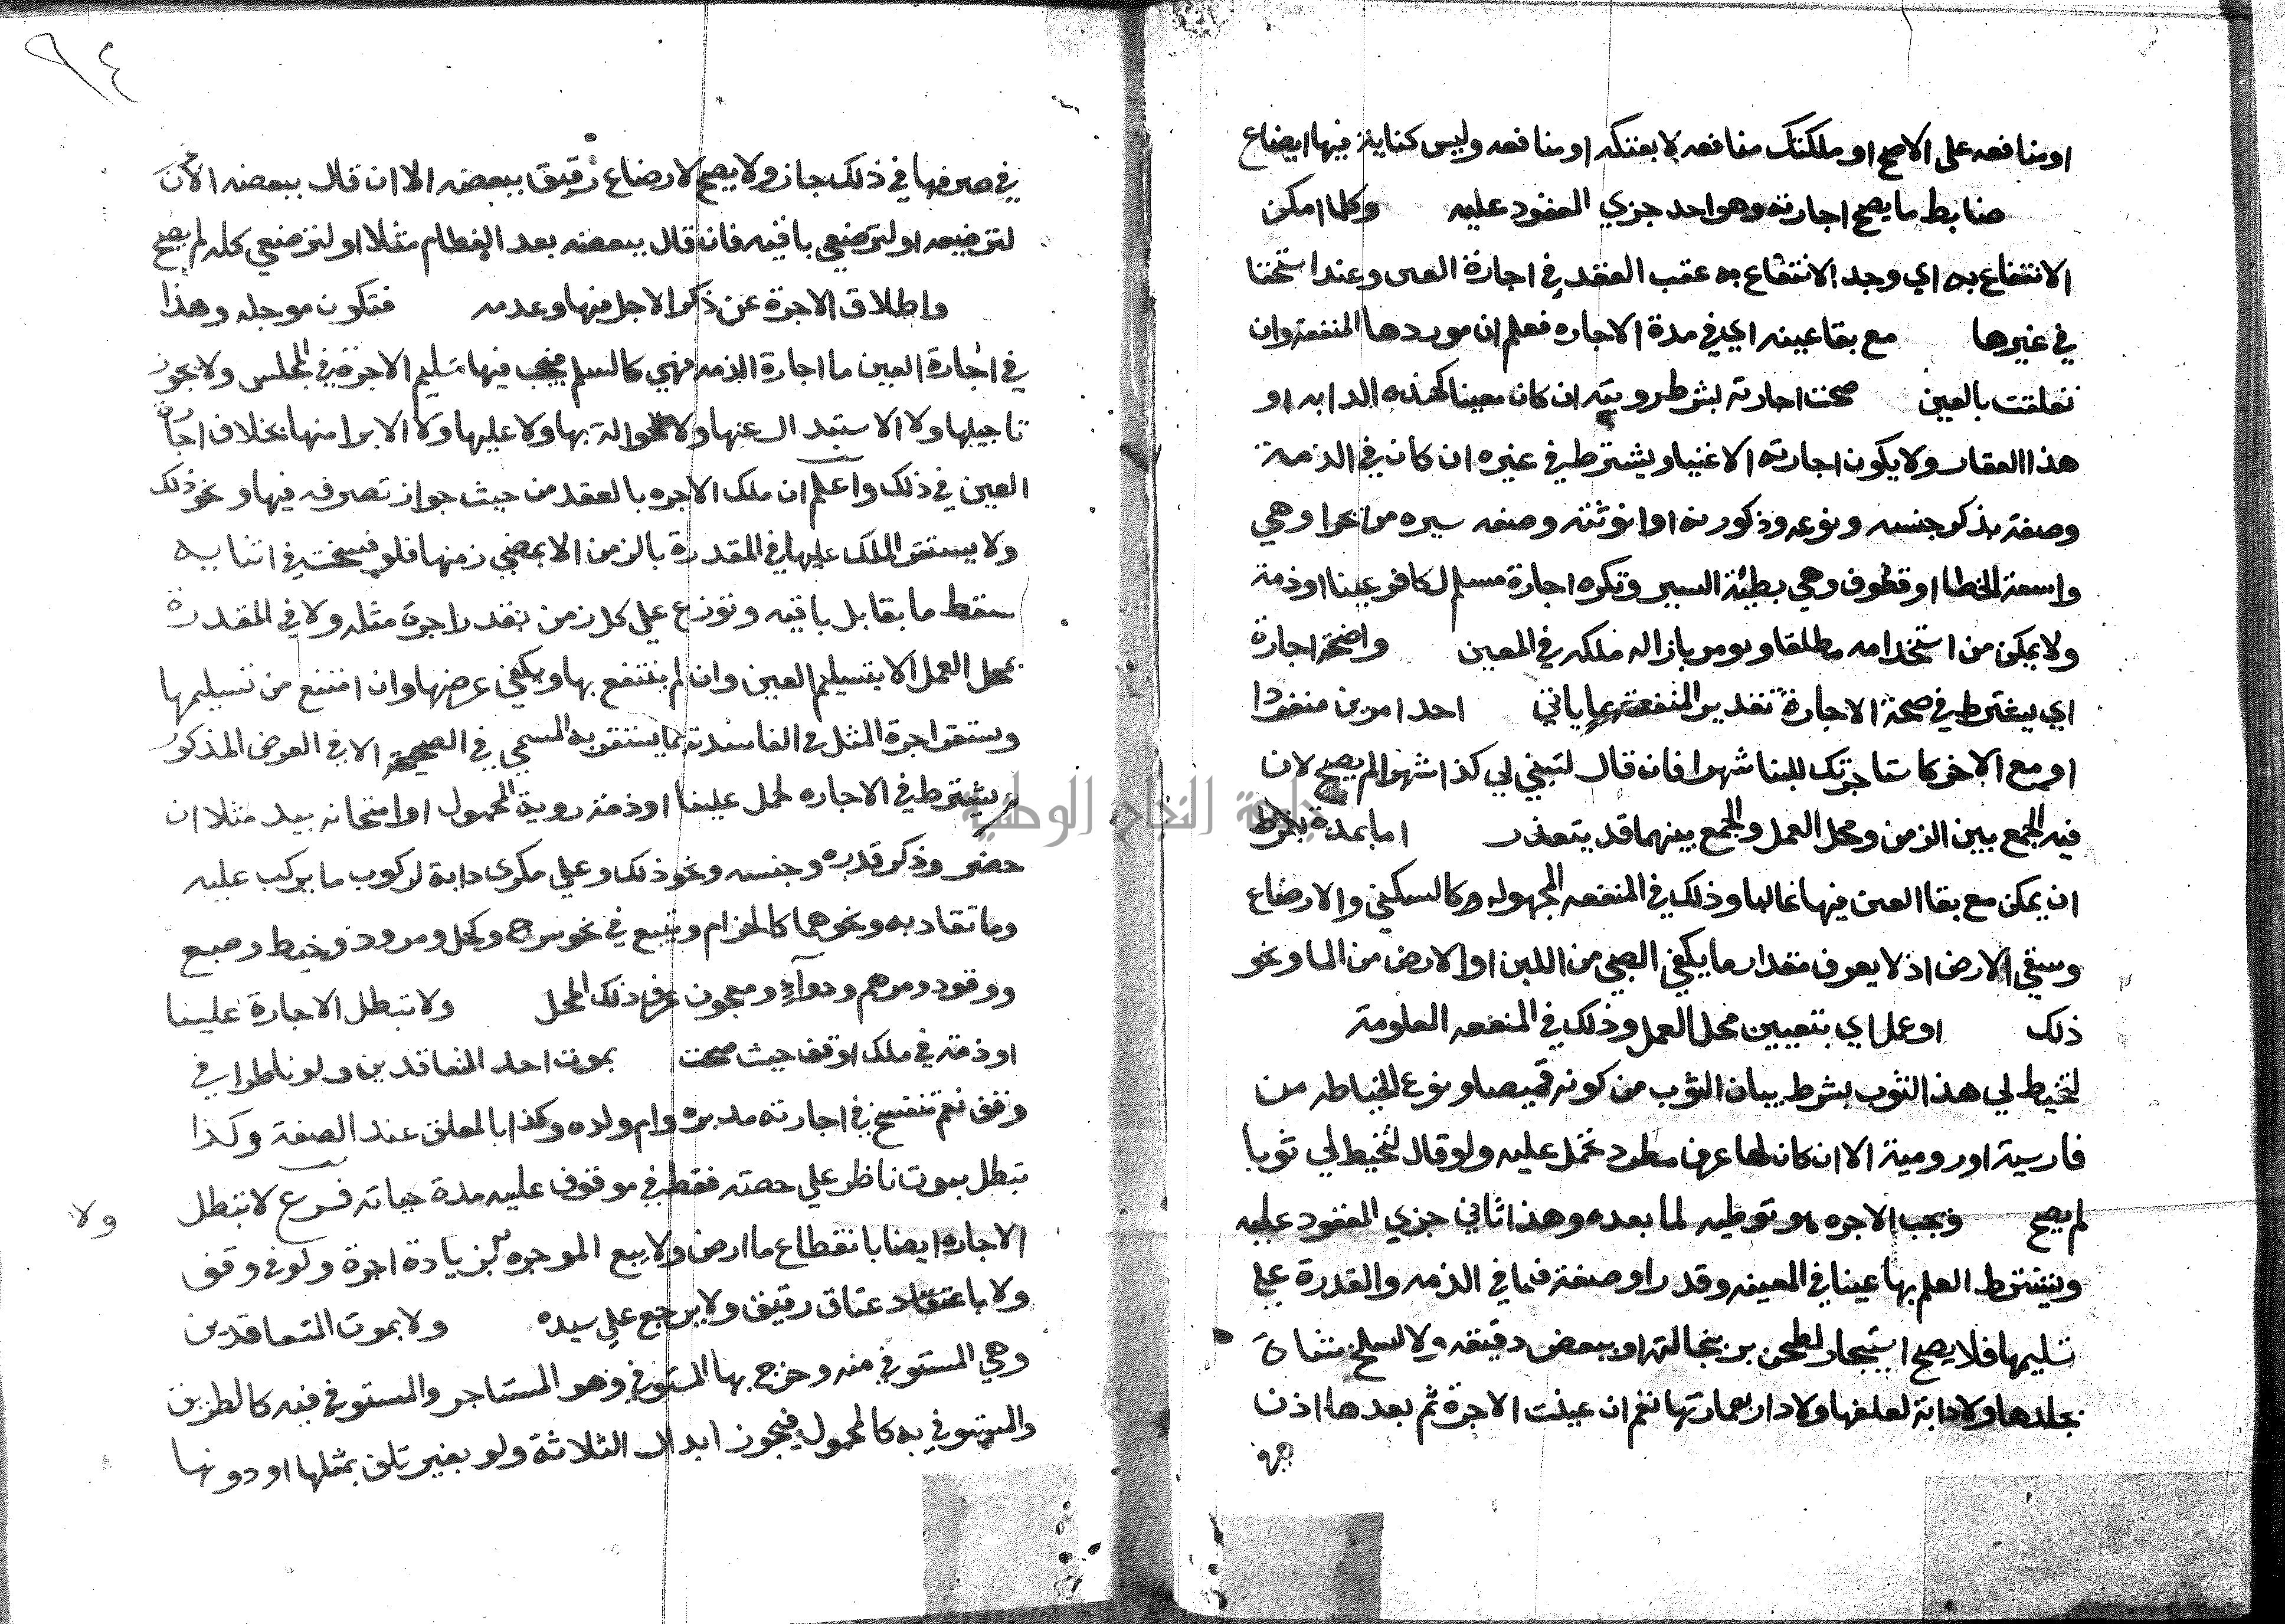 او منافعه على الاصح او ملكتك منافعه لا بعتكه او منافعه وليس كناية فيها ايضاع
ضابط ما يصح اجارته وهو احد جزي المعقود عليه وكلما امكن
الانتفاع به اي وجد الانتفاع به عقب العقد في اجارة العين وعند استحقا
في غيرها مع بقا عينه اي في مدة الاجاره فعلم ان موردها المنفعة وان
تعلقت بالعين صحت اجارته بشرط رويته ان كان معينا كهذه الدابه او
هذا العقار ولا يكون اجارته الا عينيا ويشترط في غيره ان كان في الذمة
وصفة بذكر جنسه ونوعه وذكورته او انوثته وصفه سيره من بحرا وهي
واسعة الخطا او قطوف وهي بطيئة السير وتكره اجارة مسلم لكافر عينا او ذمة
ولا يمكن من استخدامه مطلقا ويومر بازاله ملكه في المعين واضحة اجارة
اي يشترط في صحة الاجارة تقدير المنفعة بما ياتي احد امرين منفردا
او مع الاخر كاستاجرتك للبنا شهرا فان قال لتبني لي كذا شهرا لم يصح لان
فيه الجمع بين الزمن ومحل العمل والجمع بينهما قد يتعذر اما بمدة بشرط
ان يمكن مع بقا العين فيها غالبا وذلك في المنفعه المجهوله كالسكني والارضاع
وسقي الارض اذ لا يعرف مقدار ما يكفي الصبي من اللبن او الارض من الما ونحو
ذلك او عمل اي بتعيين محل العمل وذلك في المنفعه المعلومة
لتخيط لي هذ الثوب بشرط بيان الثوب من كونه قميصا ونوع الخياطه من
فارسية او رومية الا ان كان لها عرف مطرد تحمل عليه ولو قال لتخيط لي ثوبا
لم يصح وبجب الاجره هو توطيه لما بعده وهذا ثاني جزي المعقود عليه
ويشترط العلم بها عينا في المعينه وقدرا وصفة فما في الذمه والقدرة علي
تسليمها فلا يصح استيجار لطحن بر بنخالته او ببعض دقيقه ولا لسلخ شاة
بجلدها ولا دابة لعلفها ولا دار بعمارتها نعم ان عينت الاجرة ثم بعدها اذن
٩٤
في صرفها في ذلك جاز ولا يصح لارضاع رقيق ببعضه الا ان قال ببعضه الان
لترضيعه او لترضيعي باقيه فان قال ببعضه بعد الفطام مثلا او لترضيعي كله لم يصح
واطلاق الاجرة عن ذكر الاجل منها وعدمه فتكون موجله وهذا
في اجارة العين ما اجارة الذمه فهي كالسلم فيجب فيها تسليم الاجرة في المجلس ولا يجوز
تاجيلها ولا الاستبدال عنها ولا الحوالة بها ولا عليها ولا الابرا منها بخلاف اجارة
العين في ذلك واعلم ان ملك الاجره بالعقد من حيث جواز تصرفه فيها ونحو ذلك
ولا يستقر الملك عليها في المقدرة بالزمن الا بمضي زمنها فلو فسخت في اثنايه
سقط ما يقابل باقيه وتوزع علي كل زمن بقدر اجرة مثله ولا في المقدرة
بمحل العمل الا بتسليم العين وان لم ينتفع بها ويكفي عرضها وان امتنع من تسليمها
وستقر اجرة المثل في الفاسدة بما يستقر به المسمي في الصحيحة الا في العرض المذكور
ويشترط في الاجاره لحمل علينا او ذمة روية المحمول او امتحانه بيد مثلا ان
حضر وذكر قدره وجنسه ونحو ذلك وعلي مكري دابة لركوب ما يركب عليه
وما تقاد به ونحوهما كالحزام ويتبع في نحو سرج وكحل ومرود وخيط وصبغ
ووقود ومرهم ودواء ومعجون عرف ذلك المحل ولا تبطل الاجارة علينا
او ذمة في ملك او قف حيث صحت بموت احد المتعاقدين ولو ناظرا في
وقف نعم تنفسخ في اجارته مدبره وام ولده وكذا بالمعلق عند الصفة وكذا
تبطل بموت ناظر علي حصته فقط في موقوف عليه مدة حياته فرع لا تبطل
الاجاره ايضا بانقطاع ما ارض ولا ببيع الموجره لزيادة اجرة ولو في وقف
ولا باعتقاد عتاق رقيق ولا يرجع علي سيده ولا بموت المتعاقدين
وهي المستوفي منه وخرج بها المستوفي وهو المستاجر والمستوفي فيه كالطريق
والمستوفي به كالمحمول فيجوز ابدال الثلاثة ولو بغير تلف بمثلها او دونها
ولا
جامعة النجاح الوطنية